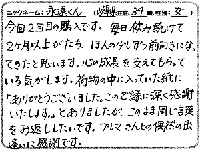 ニックネーム：永遠くん
今回2回目の購入です。毎日飲み続けて
2ヶ月以上がたち、ほんの少しずつ前向きになっ
てきたと思います。心の成長を支えてもらって
いる気がします。荷物の中に入っていた紙に
「ありがとうございました。このご縁に深く感謝
いたします。」とありましたが、このまま同じ言葉
をお返ししたいです。プリマさんもの偶然の出
逢いに感謝です。